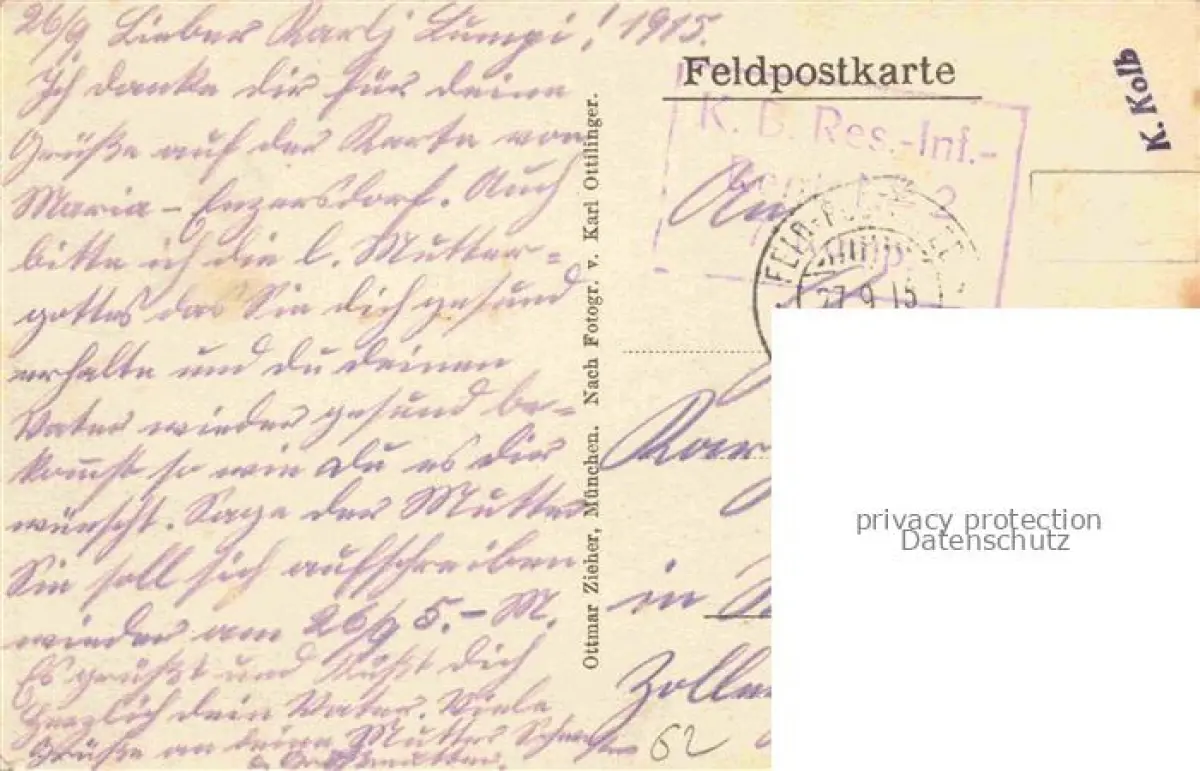 26/9 Lieber Karlj Lumpi! 1915.
Ich danke dir für deine
Grüße auf der Karte von
Maria-Enzersdorf. Auch
bitte ich die l. Mutter=
gottes das Sie dich gesund
erhalte und du deinen
Vater wieder gesund be=
kommst so wie du es dir
wünscht. Sage der Mutter
Sie soll sich aufschreiben
wieder am 26/9 5.- M.
Es grüßt und Küßt dich
herzlich dein Vater. Viele
Grüße an deine Mutter Schwester
u. Großmutter.
Ottmar Zieher, München. Nach Fotogr. v. Karl Ottilinger.
Feldpostkarte
K. Kolb
K. B. Res.-Inf.-
Regt. Nr. 2
An
27 9 15
in
62
privacy protection
Datenschutz